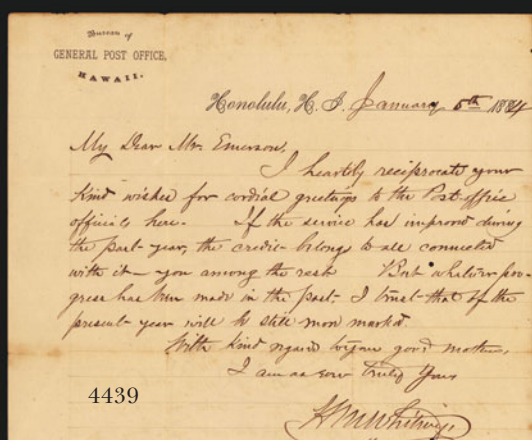 Bureau of
GENERAL POST OFFICE,
HAWAII.
Honolulu, H. I. January 5th 1884
My Dear Mr. Emerson,
I heartily reciprocate your
kind wishes for cordial greetings to the Post-office
officials here. If the service has improved during
the past year, the credit belongs to all connected
with it — you among the rest. But whatever pro-
gress has been made in the past, I trust that of the
present year will be still more marked.
With kind regards to your good mother,
I am as ever truly Yours
H M Whitney
4439